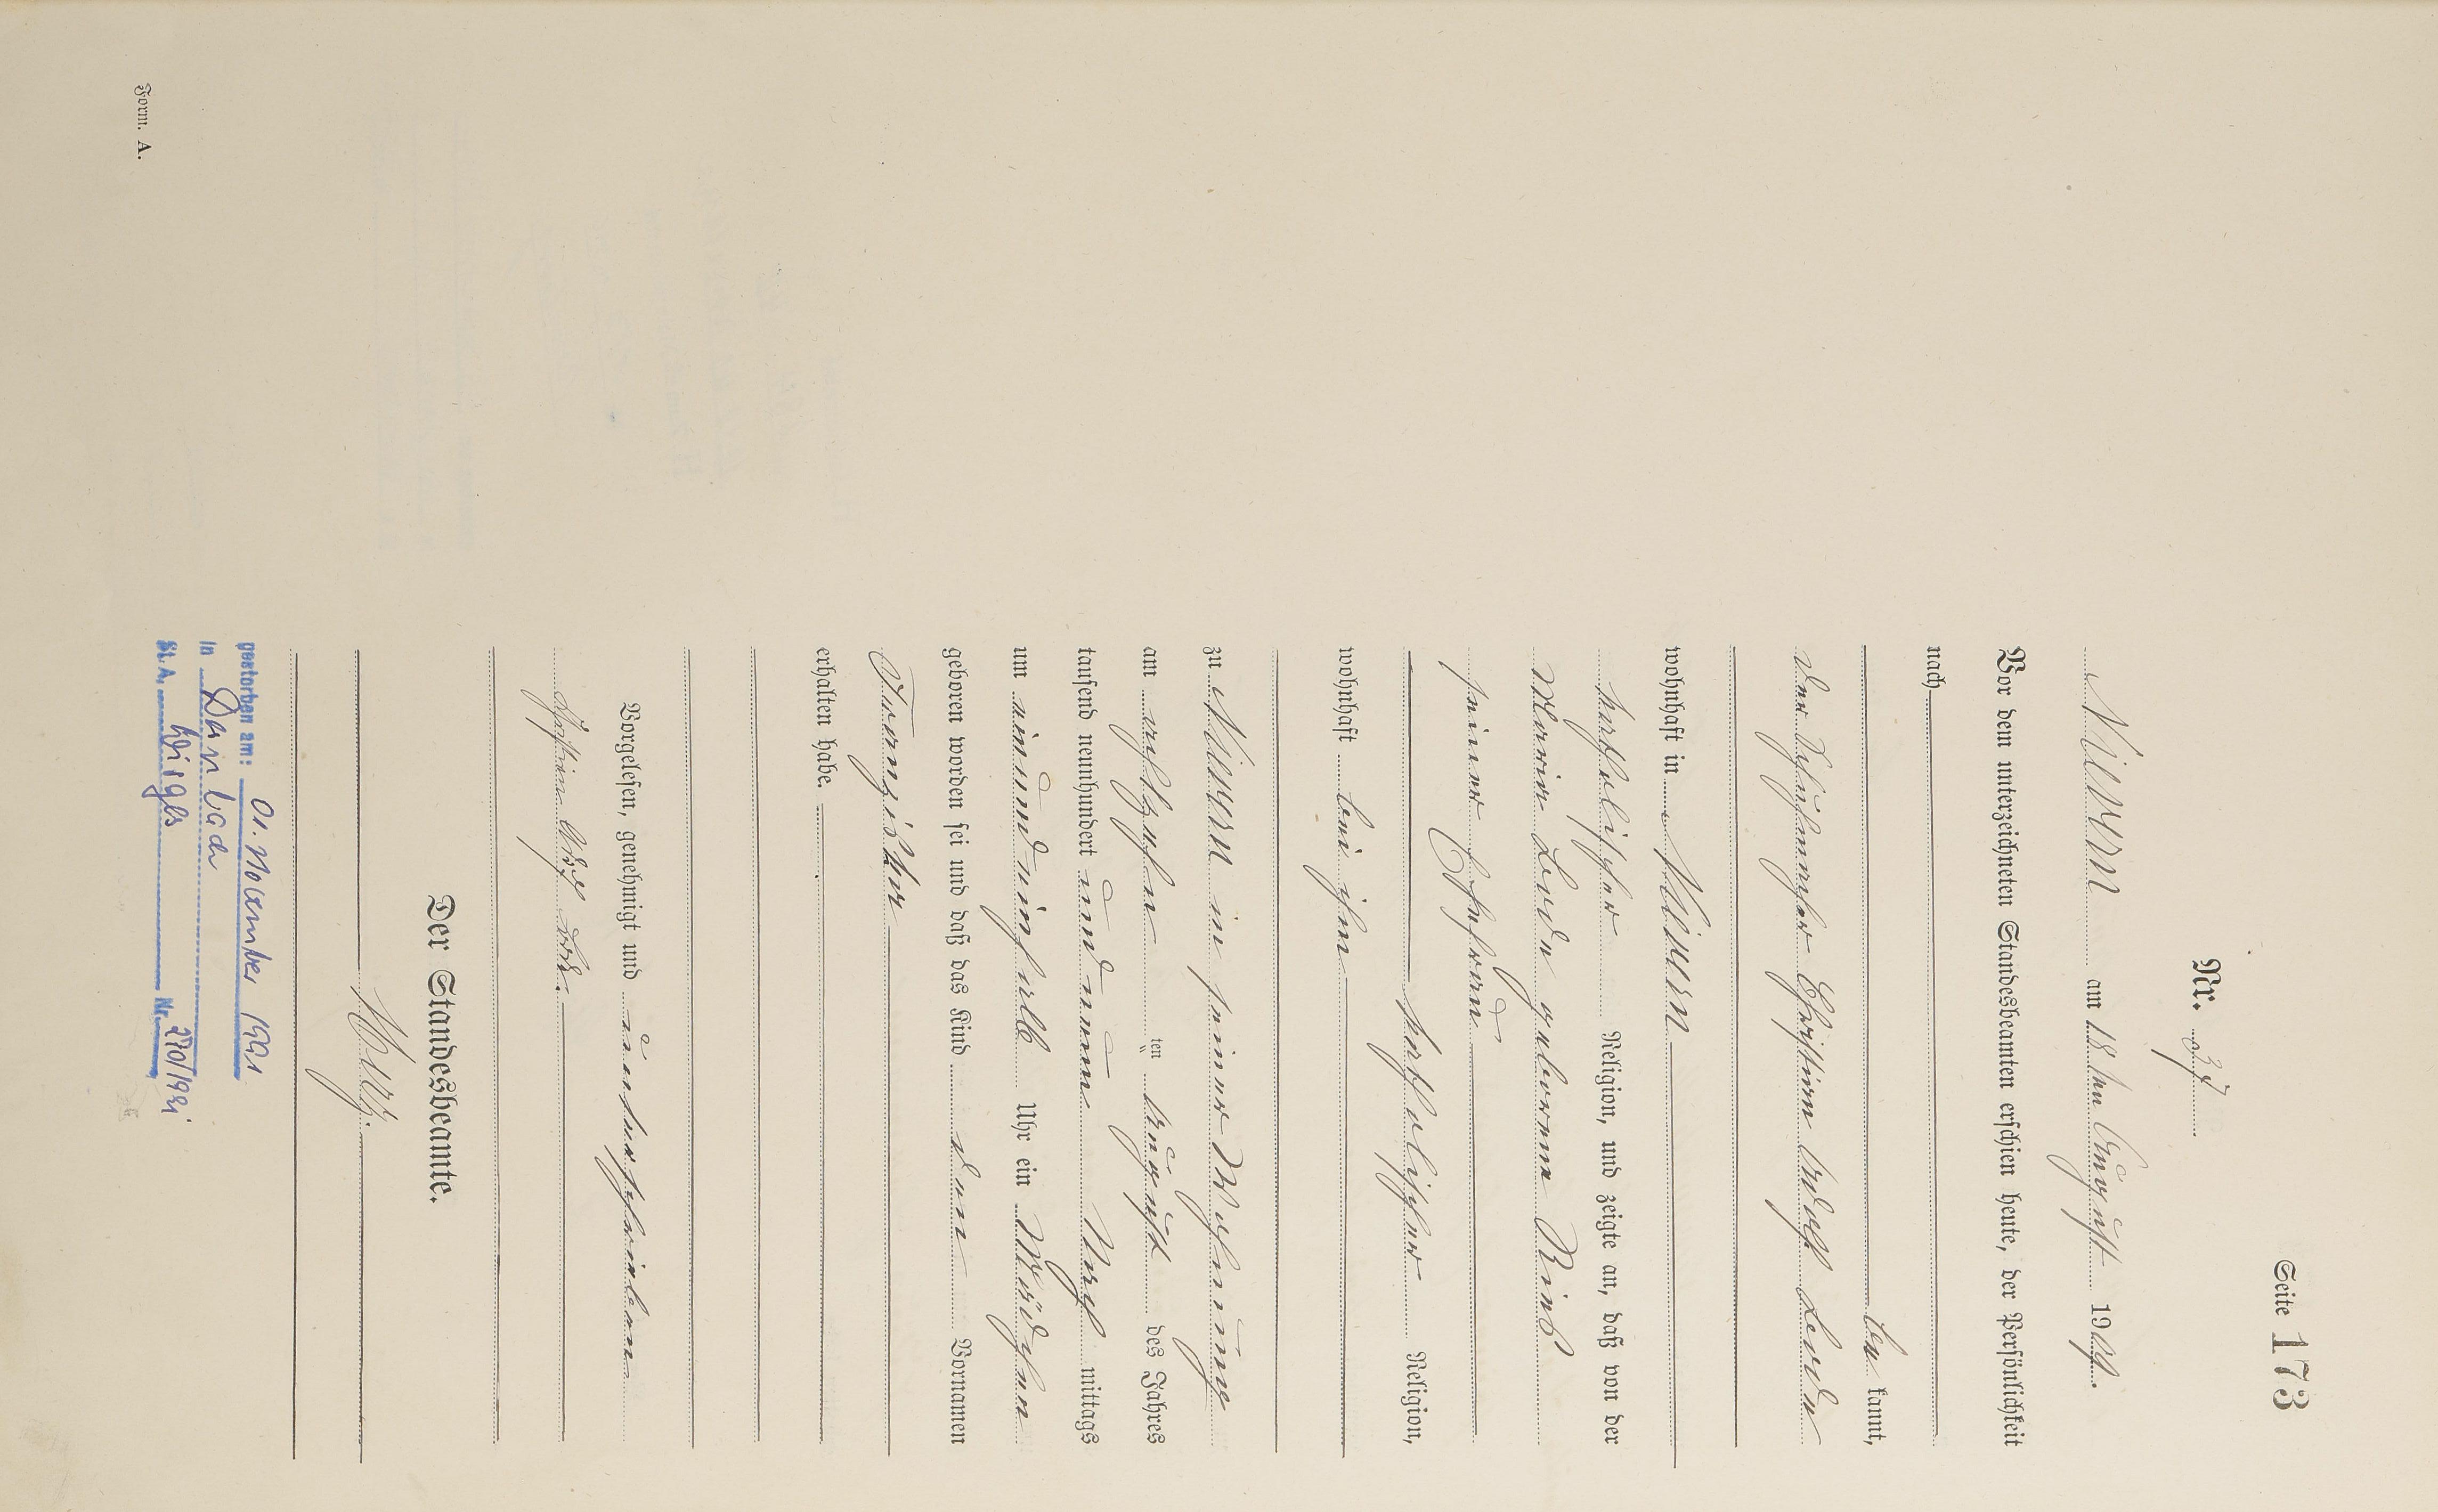 Seite 173
Nr. 37
Nievern am 18ten August 1909.
Vor dem unterzeichneten Standesbeamten erschien heute, der Persönlichkeit
nach
be kannt,
der Christian Adolf Lede
wohnhaft in Nievern
katholischer Religion, und zeigte an, daß von der
Maria Lede geborene
seiner Ehefrau
katholischer Religion,
wohnhaft bei ihm
zu Nievern in seiner Wohnung
am achtzehn ten August des Jahres
tausend neunhundert und neun Nach mittags
um einundeinhalb Uhr ein Mädchen
geboren worden sei und daß das Kind den Vornamen
Franziska
erhalten habe.
Vorgelesen, genehmigt und unterschrieben
Christian Adolf
Der Standesbeamte.
gestorben am: 01. November 1991
in Dernbach
St. A. Wirges Nr. 270/1991
Form. A.